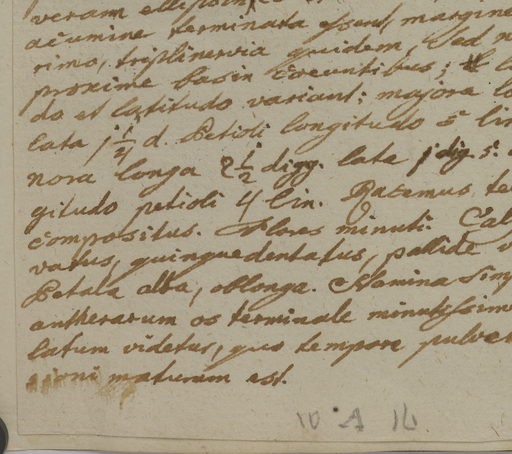 veram ellipsin
acumine terminata essent, margine
rimo, triplinervia quidem, sed n
proxime basin coeuntibus;
do et latitudo variant; majora lo
lata 1 1/2 d. Petioli longitudo 5 lin
nora longa 2 1/2 digg. lata 1 dig. 5.
gitudo petioli 4 lin. Racemus te
compositus. Flores minuti. Cal
vatus, quinquedentatus, pallide v
Petala alba, oblonga. Stamina simp
antherarum os terminale minutissim
latum videtur, quo tempore pulve
maturum est.